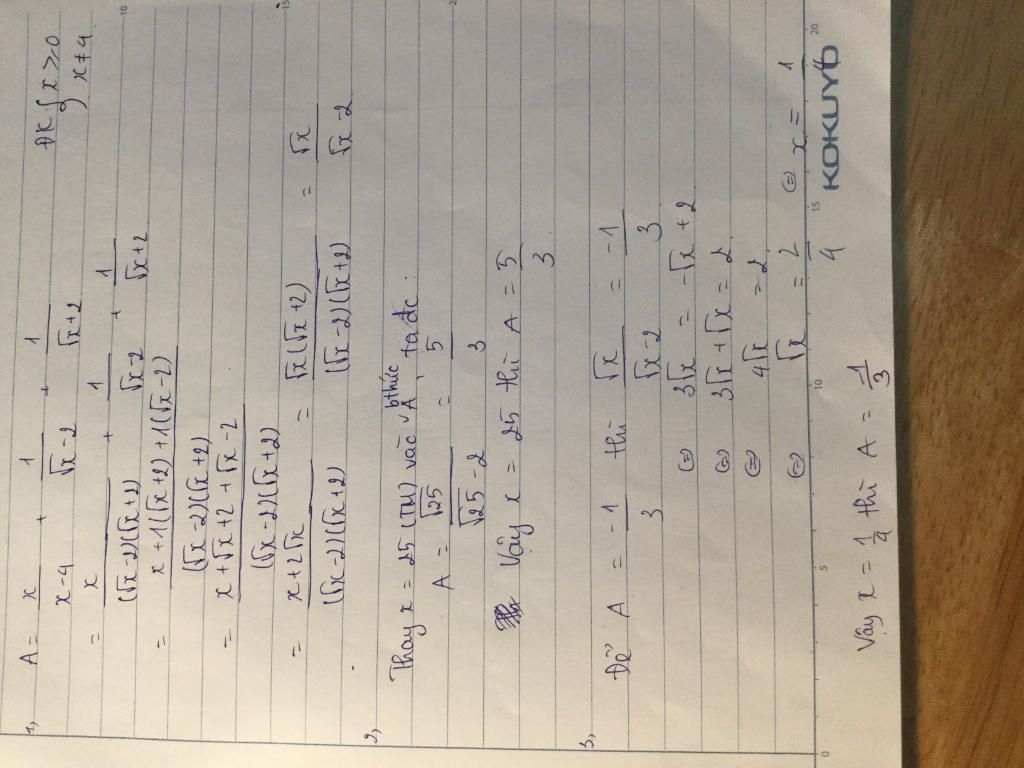 1, A = x/(x-4) + 1/(√x-2) + 1/(√x+2) ĐK { x ≥ 0
x ≠ 4
= x/((√x-2)(√x+2)) + 1/(√x-2) + 1/(√x+2)
= (x + 1(√x+2) + 1(√x-2))/((√x-2)(√x+2))
= (x + √x + 2 + √x - 2)/((√x-2)(√x+2))
= (x + 2√x)/((√x-2)(√x+2)) = (√x(√x+2))/((√x-2)(√x+2)) = √x/(√x-2)
2, Thay x = 25 (TM) vào bthức A, ta đc:
A = √25/(√25-2) = 5/3
Vậy x = 25 thì A = 5/3
3, Để A = -1/3 thì √x/(√x-2) = -1/3
⇔ 3√x = -√x + 2
⇔ 3√x + √x = 2
⇔ 4√x = 2
⇔ √x = 2/4 ⇔ x = 1/4
Vậy x = 1/4 thì A = -1/3
10
15
2
0
5
10
15
20
KOKUYO